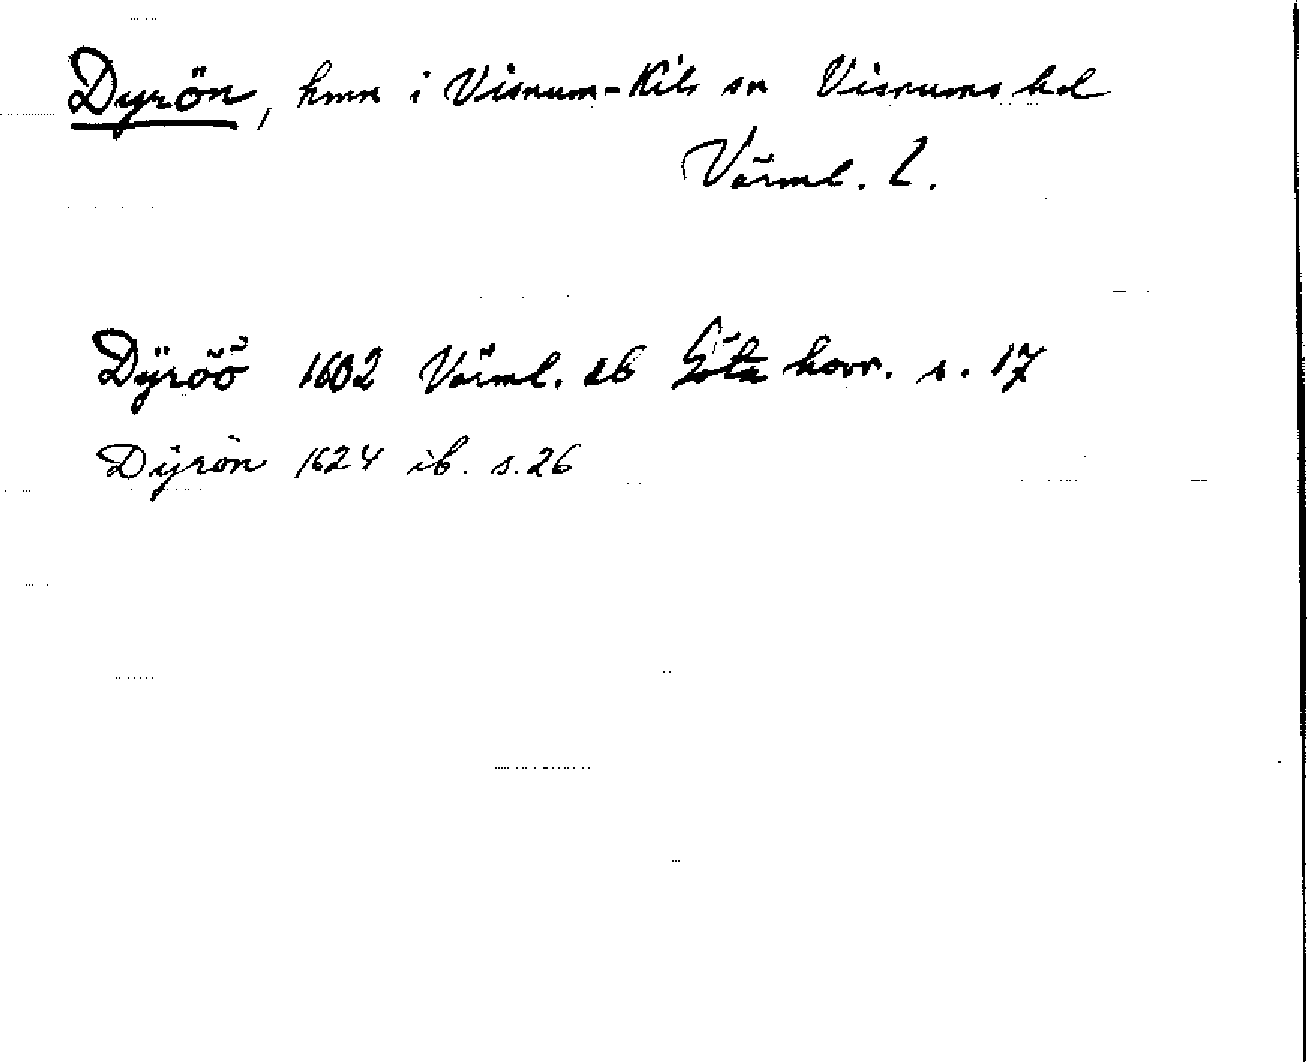 Dyrön, hmn i Visnum-Kils sn Visnums hd
Värml. l.
Dÿröö 1602 Värml. 26 Göta hovr. s. 17
Dÿrön 1624 ib. s. 26